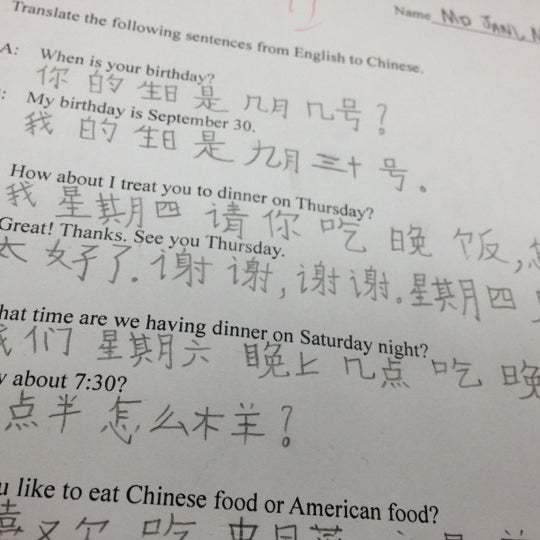 Name MD
Translate the following sentences from English to Chinese.
A: When is your birthday?
你的生日是几月几号？
: My birthday is September 30.
我的生日是九月三十号。
How about I treat you to dinner on Thursday?
我星期四请你吃晚饭,
Great! Thanks. See you Thursday.
太好了.谢谢,谢谢。星期四
hat time are we having dinner on Saturday night?
我们星期六晚上几点吃晚
w about 7:30?
点半怎么样？
u like to eat Chinese food or American food?
喜欢吃中国菜